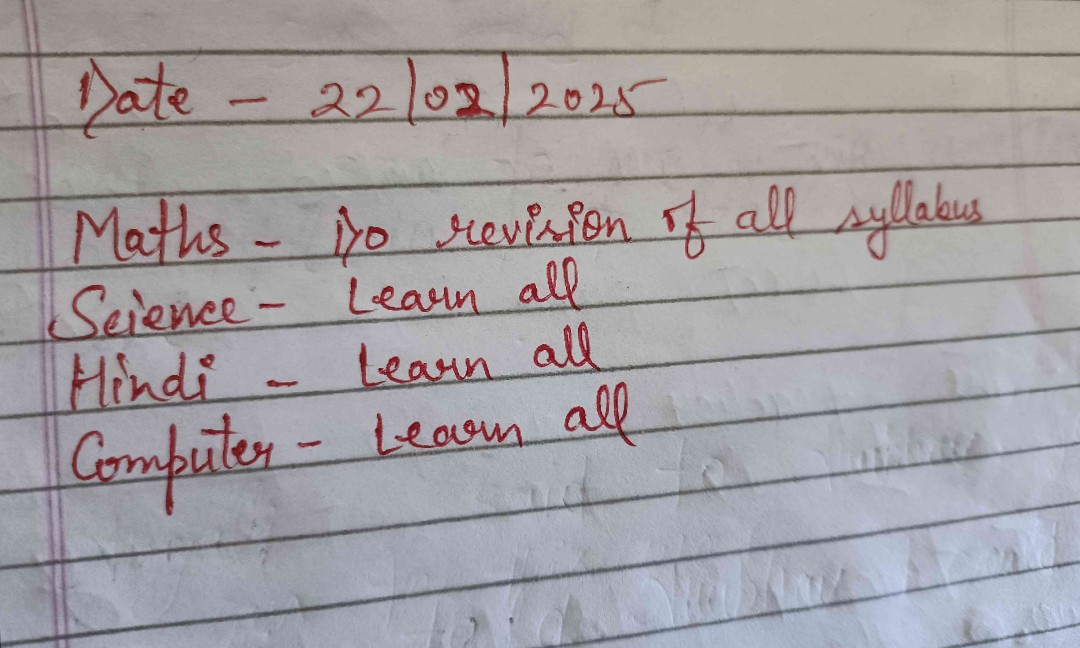 Date - 22/02/2025
Maths - Do revision of all syllabus
Science - Learn all
Hindi - Learn all
Computer - Learn all